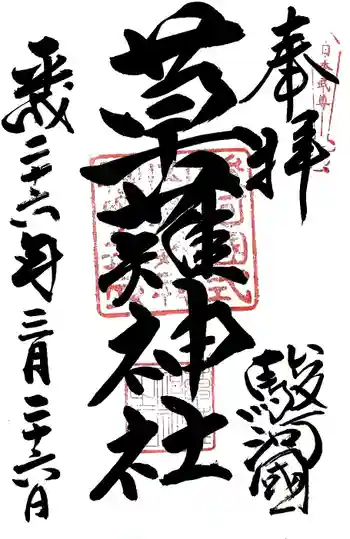 奉拝
日本武尊
駿河國
草薙神社
平成二十六年三月二十六日